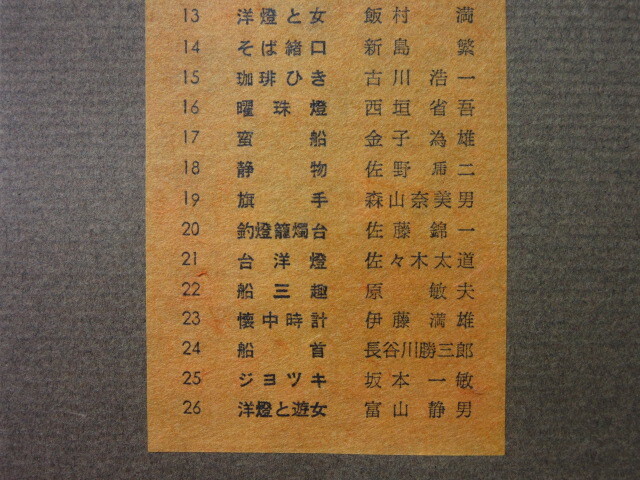 13 洋燈と女 飯村満
14 そば緒口 新島繁
15 珈琲ひき 古川浩一
16 曜珠燈 西垣省吾
17 蛮船 金子為雄
18 静物 佐野二
19 旗手 森山奈美男
20 釣燈籠燭台 佐藤錦一
21 台洋燈 佐々木太道
22 船三趣 原敏夫
23 懐中時計 伊藤満雄
24 船首 長谷川勝三郎
25 ジヨツキ 坂本一敏
26 洋燈と遊女 富山静男